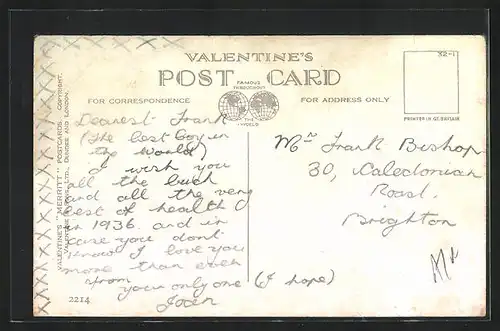 VALENTINE'S
POST CARD
FAMOUS THROUGHOUT
THE WORLD
FOR CORRESPONDENCE
FOR ADDRESS ONLY
32-1
PRINTED IN GT. BRITAIN
VALENTINE'S "MERRITT" POSTCARDS. COPYRIGHT.
VALENTINE & SONS, LTD., DUNDEE AND LONDON.
Dearest Frank
(The best Boy in
the world)
I wish you
all the luck
and all the very
best of health
in 1936. and in
case you dont
know I love you
more than ever
from
your only one (I hope)
Joan
2214
Mr Frank Bishop
30, Caledonian
Road.
Brighton